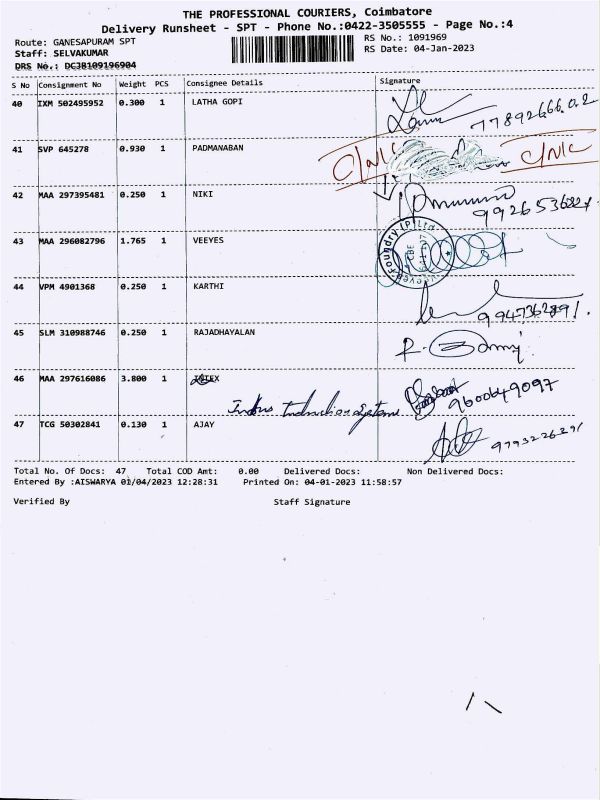 THE PROFESSIONAL COURIERS, Coimbatore
Delivery Runsheet - SPT - Phone No.:0422-3505555 - Page No.:4
Route: GANESAPURAM SPT
RS No.: 1091969
Staff: SELVAKUMAR
RS Date: 04-Jan-2023
DRS No.: DCJB109196904
S No Consignment No Weight PCS Consignee Details Signature
40 IXM 502495952 0.300 1 LATHA GOPI
41 SVP 645278 0.930 1 PADMANABAN
C/N/C C/N/C
42 MAA 297395481 0.250 1 NIKI
43 MAA 296082796 1.765 1 VEEYES
Foundry (P) Ltd
CBE
44 VPM 4901368 0.250 1 KARTHI
45 SLM 310988746 0.250 1 RAJADHAYALAN
46 MAA 297616086 3.800 1
9600649097
47 TCG 50302841 0.130 1 AJAY
Total No. Of Docs: 47 Total COD Amt: 0.00 Delivered Docs: Non Delivered Docs:
Entered By :AISWARYA 01/04/2023 12:28:31 Printed On: 04-01-2023 11:58:57
Verified By Staff Signature